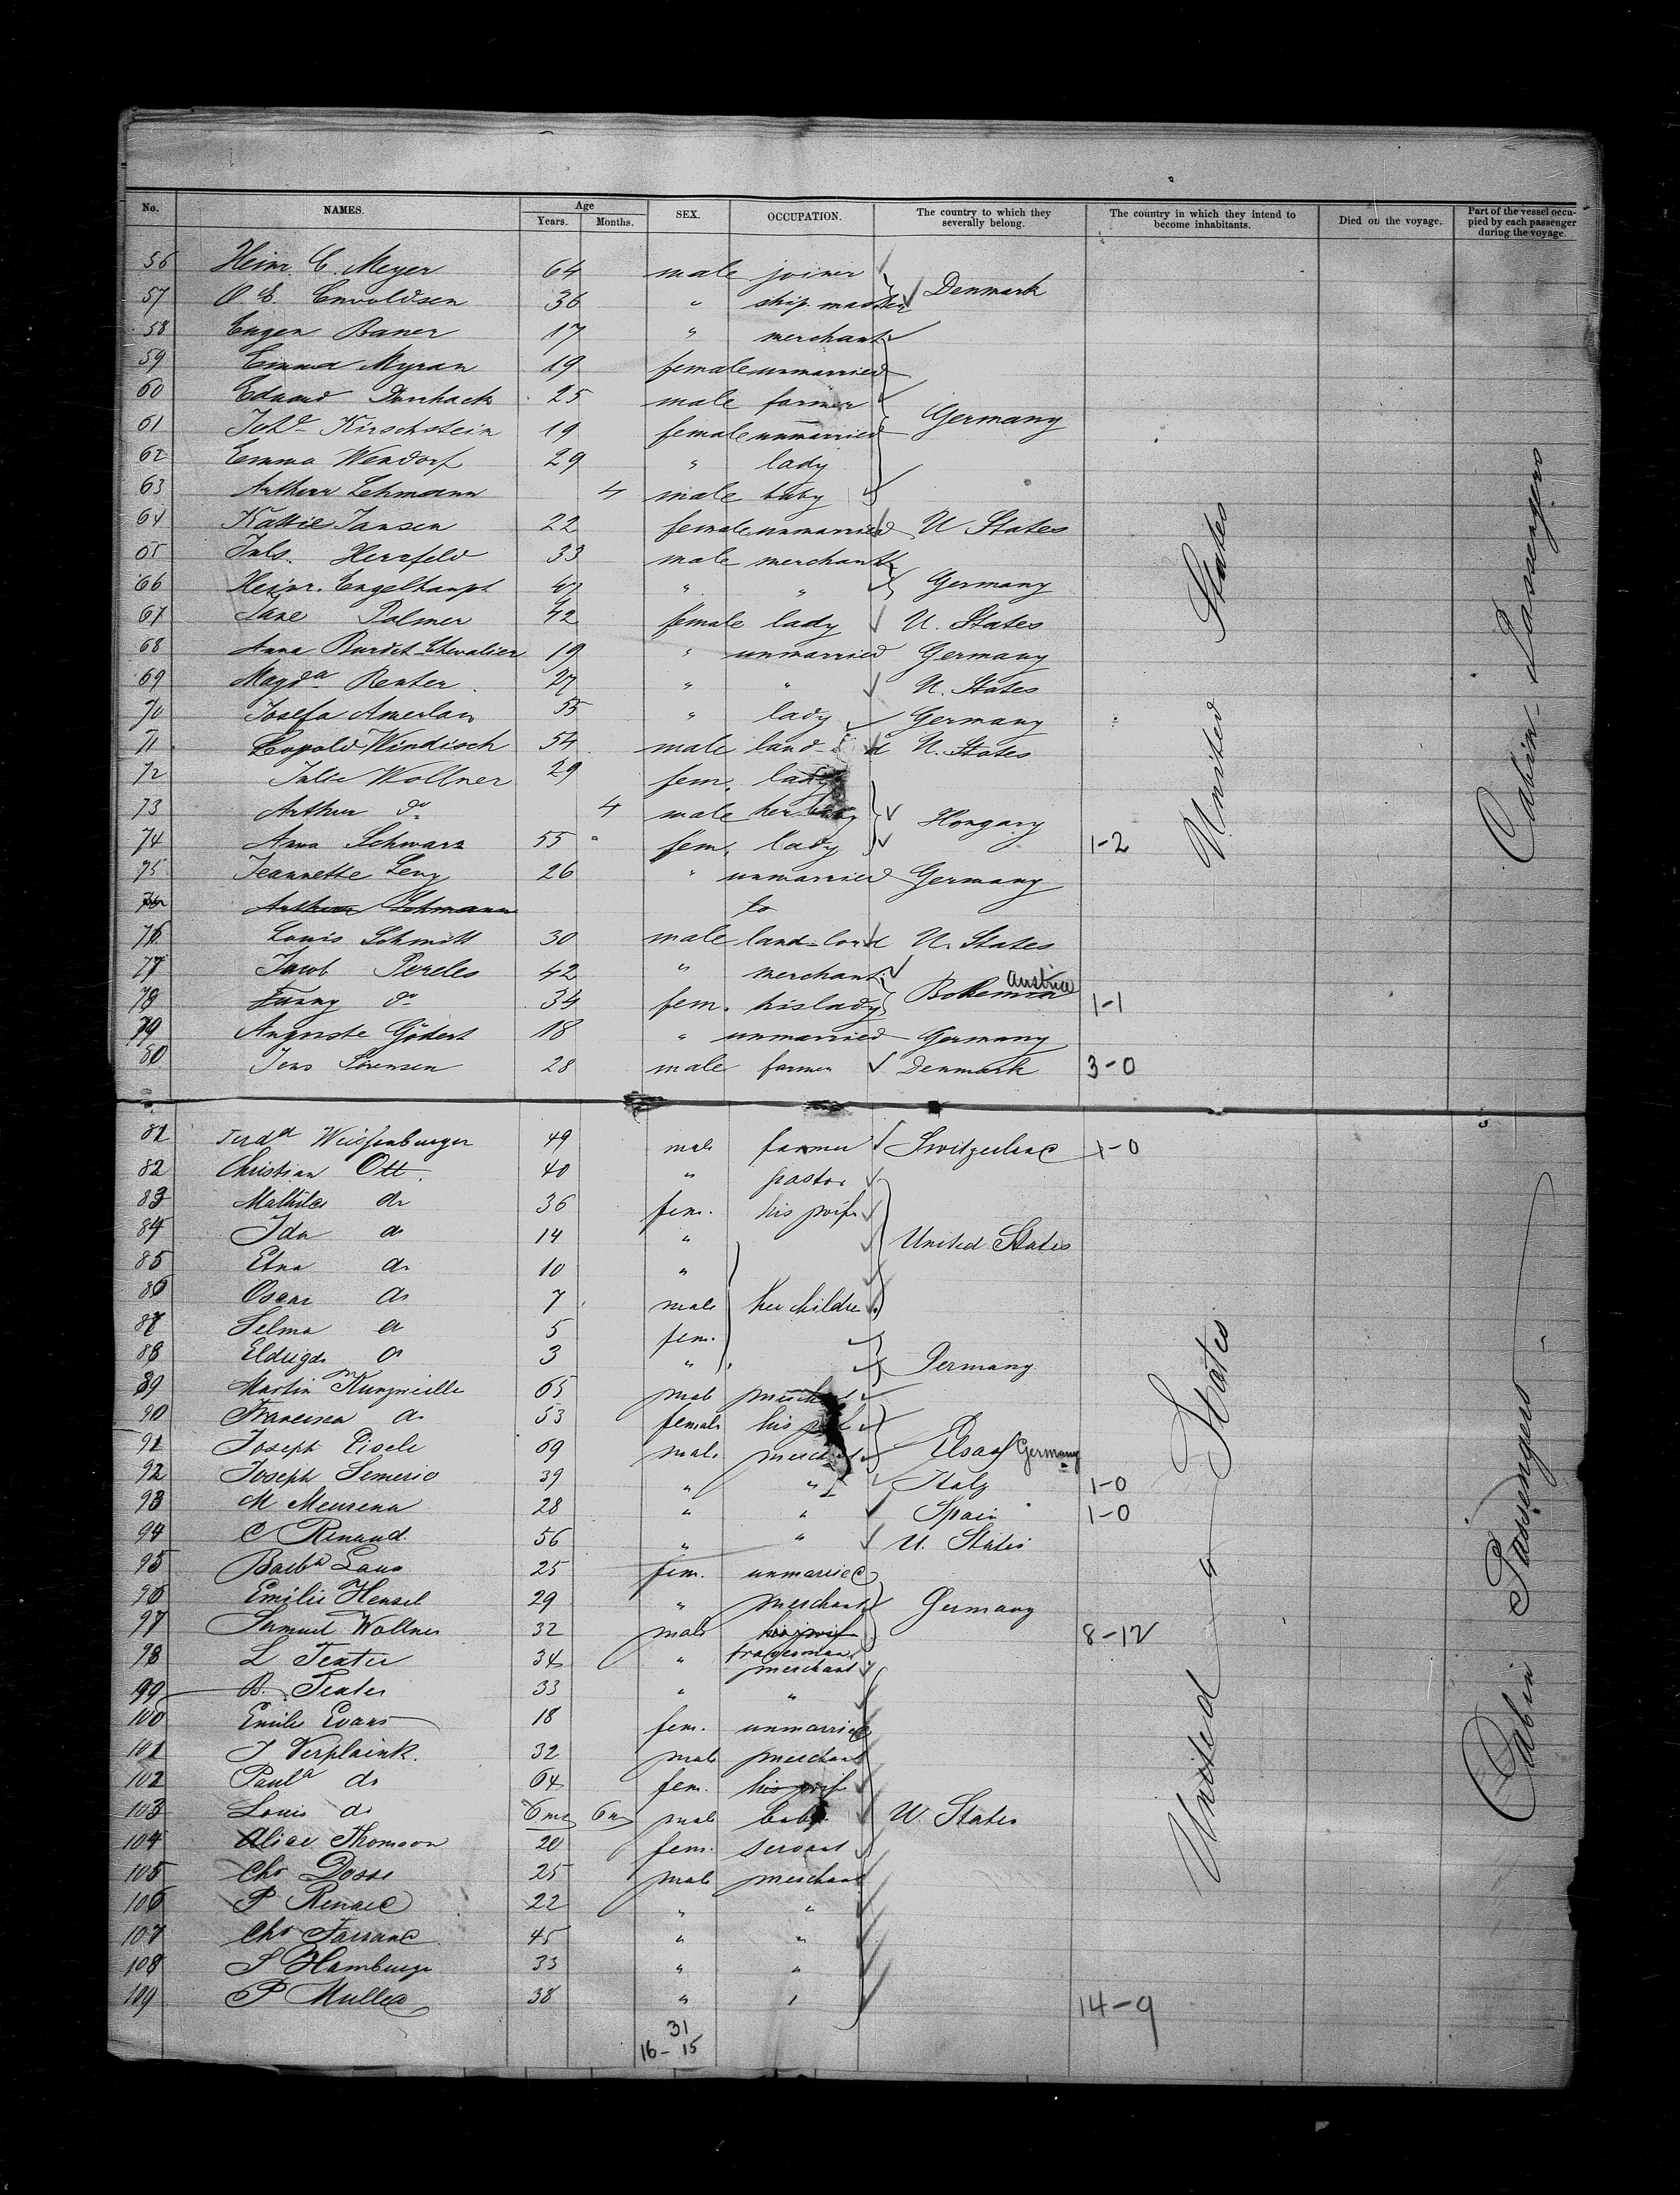 No. NAMES. Age Years. Months. SEX. OCCUPATION. The country to which they severally belong. The country in which they intend to become inhabitants. Died on the voyage. Part of the vessel occupied by each passenger during the voyage.
56 Heinr. C. Meyer 64 male joiner
57 O E. Envoldsen 36 " ship master Denmark
58 Eugen Baner 17 " merchant
59 Emma Myran 19 female unmarried
60 Eduard 25 male farmer
61 Kirschstein 19 female unmarried Germany
62 Emma Wendorf 29 " lady
63 Arthur Lehmann 4 male baby
64 Kattie Jansen 22 female unmarried U States
65 Juls. Herzfeld 33 male merchant
66 Heinr. Engelhaupt 47 " " Germany
67 Jane Palmer 42 female lady U. States
68 Anna Burdet-Chevalier 19 " unmarried Germany
69 Magda Renter 27 " " U. States
70 Josefa Amerlan 55 " lady Germany
71 Leopold Windisch 54 male land- d U. States
72 Julie Wollner 29 fem. lady
73 Arthur do 4 male her baby Hongary
74 Anna Schwarz 55 " fem. lady 1-2
75 Jeannette Levy 26 " unmarried Germany
Arthur Lehmann
76 Louis Schmitt 30 male land-lord U. States
77 Jacob Pereles 42 " merchant Bohemia Austria
78 Fanny do 34 fem. his lady 1-1
79 Auguste Gödert 18 " unmarried Germany
80 Jens Sörensen 28 male farmer Denmark 3-0
United States
Cabin-Passengers
81 Ferdd Weissenburger 49 male farmer Switzerland 1-0
82 Christian Ott. 40 " pastor
83 Mathilde do 36 fem. his wife
84 Ida do 14 " United States
85 Etna do 10 "
86 Oscar do 7 male her children
87 Selma do 5 fem.
88 do 3 " Germany
89 Martin 65 male merchant
90 Francisca do 53 female his wife
91 Joseph Eisele 69 male merchant Elsass Germany
92 Joseph Semerio 39 " " Italy 1-0
93 M Meurena 28 " " Spain 1-0
94 C Renaud. 56 " " U. States
95 Barba Laus 25 fem. unmarried
96 Emilie Hensel 29 " merchant Germany
97 Samuel Wollner 32 male his wife tradesman 8-12
98 L Texter 34 " merchant
99 B. Texter 33 " "
100 Emile Evans 18 fem. unmarried
101 J Verplaink. 32 male merchant
102 Paula do 64 fem. his wife
103 Louis do 6 mo 6 m male baby U. States
104 Alice Thomson 20 fem. servant
105 Chs Dosse 25 male merchant
106 P Renard 22 " "
107 Chs Farrand 45 " "
108 S Hamburger 33 " "
109 P Muller 38 " "
14-9
31
16-15
United States
Cabin Passengers